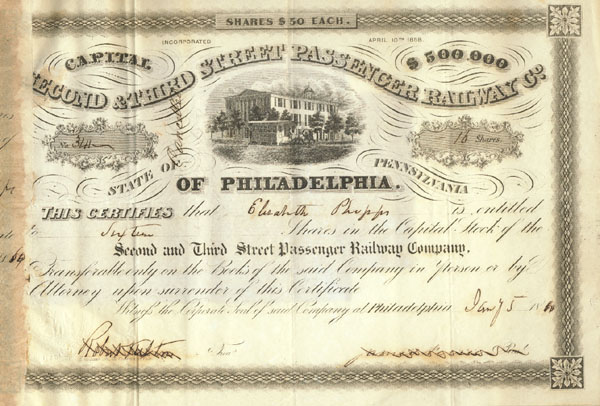 SHARES $50 EACH.
INCORPORATED APRIL 10TH 1858.
CAPITAL $500.000
SECOND & THIRD STREET PASSENGER RAILWAY CO.
No. 344 16 Shares.
STATE OF PENNSYLVANIA
OF PHILADELPHIA.
THIS CERTIFIES that Elizabeth Phipps is entitled
to Sixteen Shares in the Capital Stock of the
Second and Third Street Passenger Railway Company.
Transferable only on the Books of the said Company in person or by
Attorney upon surrender of this Certificate
Witness the Corporate Seal of said Company at Philadelphia Jany 5 186